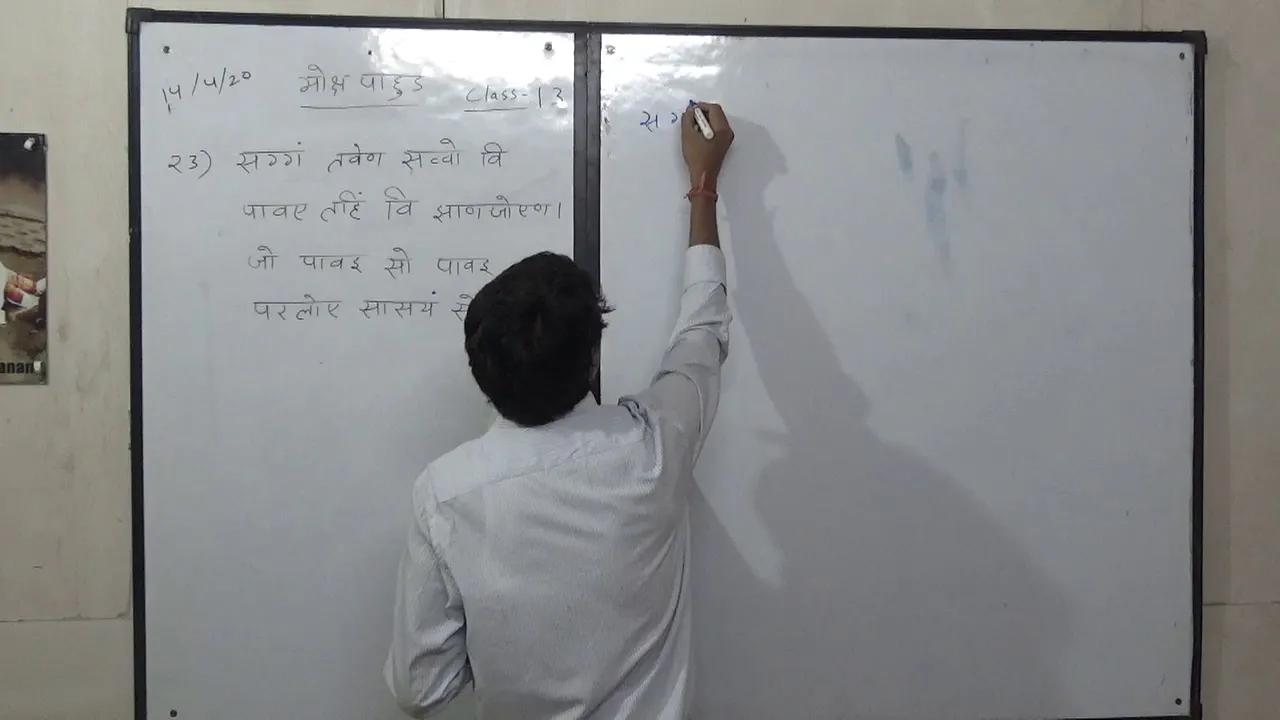 14/4/20 मोक्ष पाहुड Class-13
23) सग्गं तवेण सव्वो वि
पावए तहिं वि झाणजोएण।
जो पावइ सो पावइ
परलोए सासयं
स ग
anan